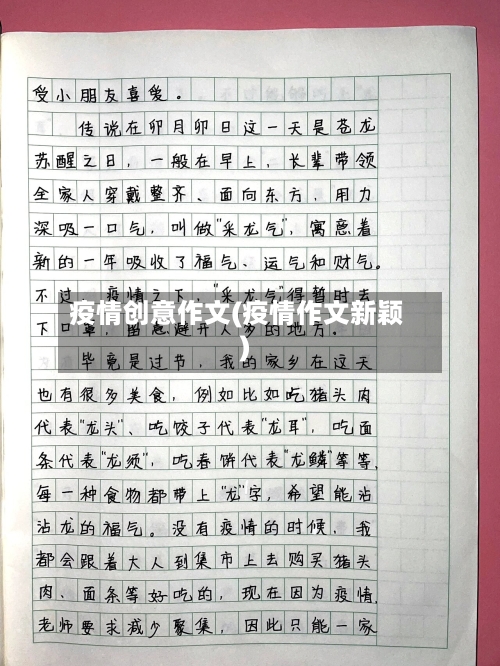 受小朋友喜爱。
传说在卯月卯日这一天是苍龙
苏醒之日，一般在早上，长辈带领
全家人穿戴整齐、面向东方，用力
深吸一口气，叫做"采龙气"，寓意着
新的一年吸收了福气、运气和财气。
不过，疫情之下，"采龙气"得暂时去
疫情创意作文(疫情作文新颖
)
下口罩，留意避开人多的地方。
毕竟是过节，我的家乡在这天
也有很多美食，例如比如吃猪头肉
代表"龙头"、吃饺子代表"龙耳"，吃面
条代表"龙须"，吃春饼代表"龙鳞"等等，
每一种食物都带上"龙"字，希望能沾
沾龙的福气。没有疫情的时候，我
都会跟着大人到集市上去购买猪头
肉、面条等好吃的，现在因为疫情，
老师要求减少聚集，因此只能一家